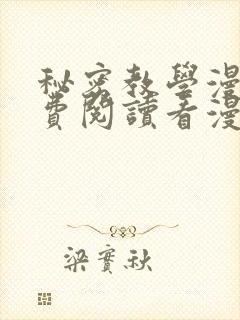 秘密教學漫
費閱讀看漫
梁實秋